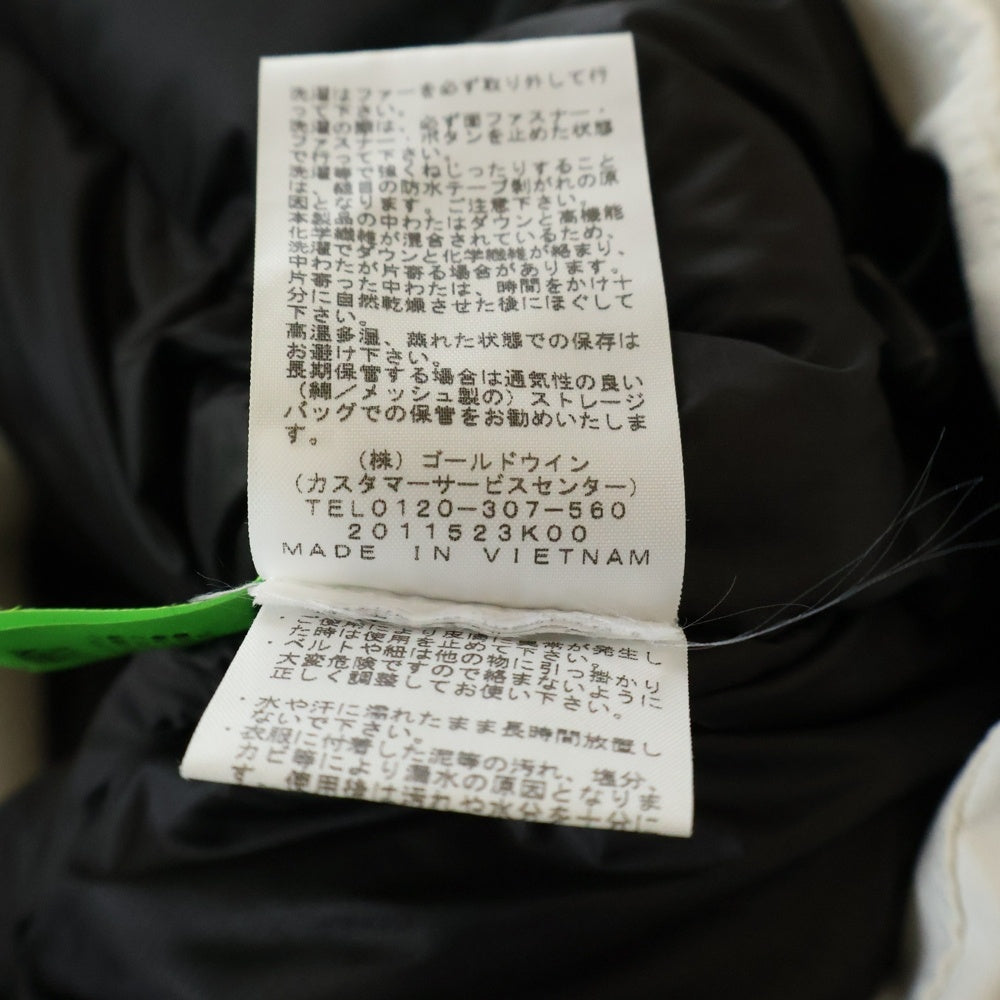 洗濯はファーを必ず取り外して行
って下さい。
洗濯の際は、必ず面ファスナー・
ファスナー、ボタンを止めた状態
で行って下さい。
洗濯等で強くねじったりすること
は、縫目の防水テープ剥がれの原
因となります。ご注意下さい。
本製品の中わたはダウンと高機能
化学繊維が混合されているため、
洗濯でダウンと化学繊維が絡まり、
中わたが片寄る場合があります。
片寄った中わたは、時間をかけ十
分に自然乾燥させた後にほぐして
下さい。
高温多湿、蒸れた状態での保存は
お避け下さい。
長期保管する場合は通気性の良い
（綿／メッシュ製の）ストレージ
バッグでの保管をお勧めいたしま
す。
（株）ゴールドウイン
（カスタマーサービスセンター）
TEL0120-307-560
2011523K00
MADE IN VIETNAM
・ご使用により皮膚に異常が発生し
た時は使用を止めて下さい。
・ベルトや紐は他の物に引っ掛かり
大変危険ですので絡まないように
正しく調整してお使い下さい。
・水や汗に濡れたまま長時間放置し
ないで下さい。
・衣服に付着した泥等の汚れ、塩分、
カビ等により漏水の原因となりま
す。使用後は汚れや水分を十分に